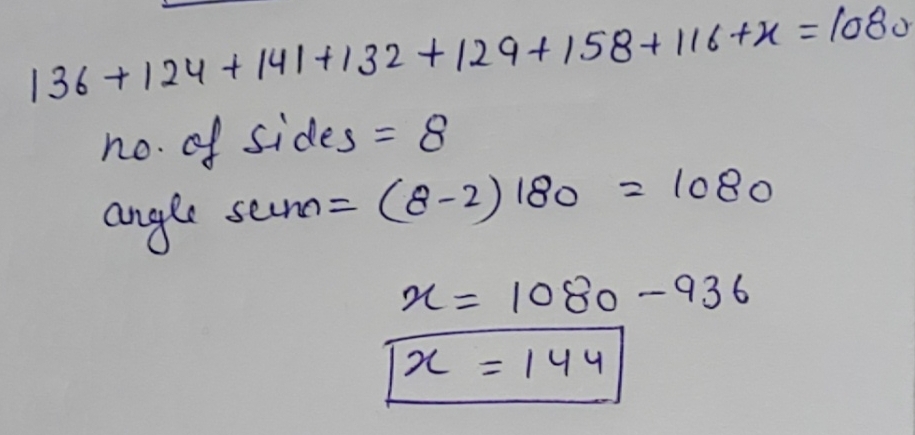 136+124+141+132+129+158+116+x=1080
no. of sides = 8
angle sum= (8-2)180 = 1080
x= 1080-936
x = 144